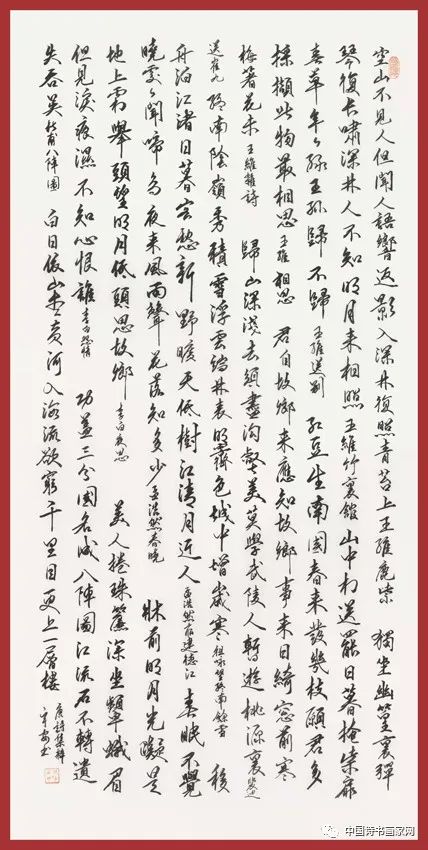 空山不見人但聞人語響返影入深林復照青苔上王維鹿柴 獨坐幽篁裏彈
琴復長嘯深林人不知明月來相照王維竹裏館 山中相送罷日暮掩柴扉
春草年年綠王孫歸不歸王維送別 紅豆生南國春來發幾枝願君多
採擷此物最相思王維相思 君自故鄉來應知故鄉事來日綺窗前寒
梅著花未王維雜詩 歸山深淺去須盡溝壑美莫學武陵人暫遊桃源裏裴迪
送崔九 終南陰嶺秀積雪浮雲端林表明霽色城中增歲寒祖詠望終南餘雪 移
舟泊江渚日暮客愁新野曠天低樹江清月近人孟浩然宿建德江 春眠不覺
曉處處聞啼鳥夜來風雨聲花落知多少孟浩然春曉 牀前明月光疑是
地上霜舉頭望明月低頭思故鄉李白夜思 美人捲珠簾深坐顰蛾眉
但見淚痕濕不知心恨誰李白怨情 功蓋三分國名成八陣圖江流石不轉遺
失吞吳杜甫八陣圖 白日依山盡黃河入海流欲窮千里目更上一層樓
唐詩集粹
中国诗书画家网